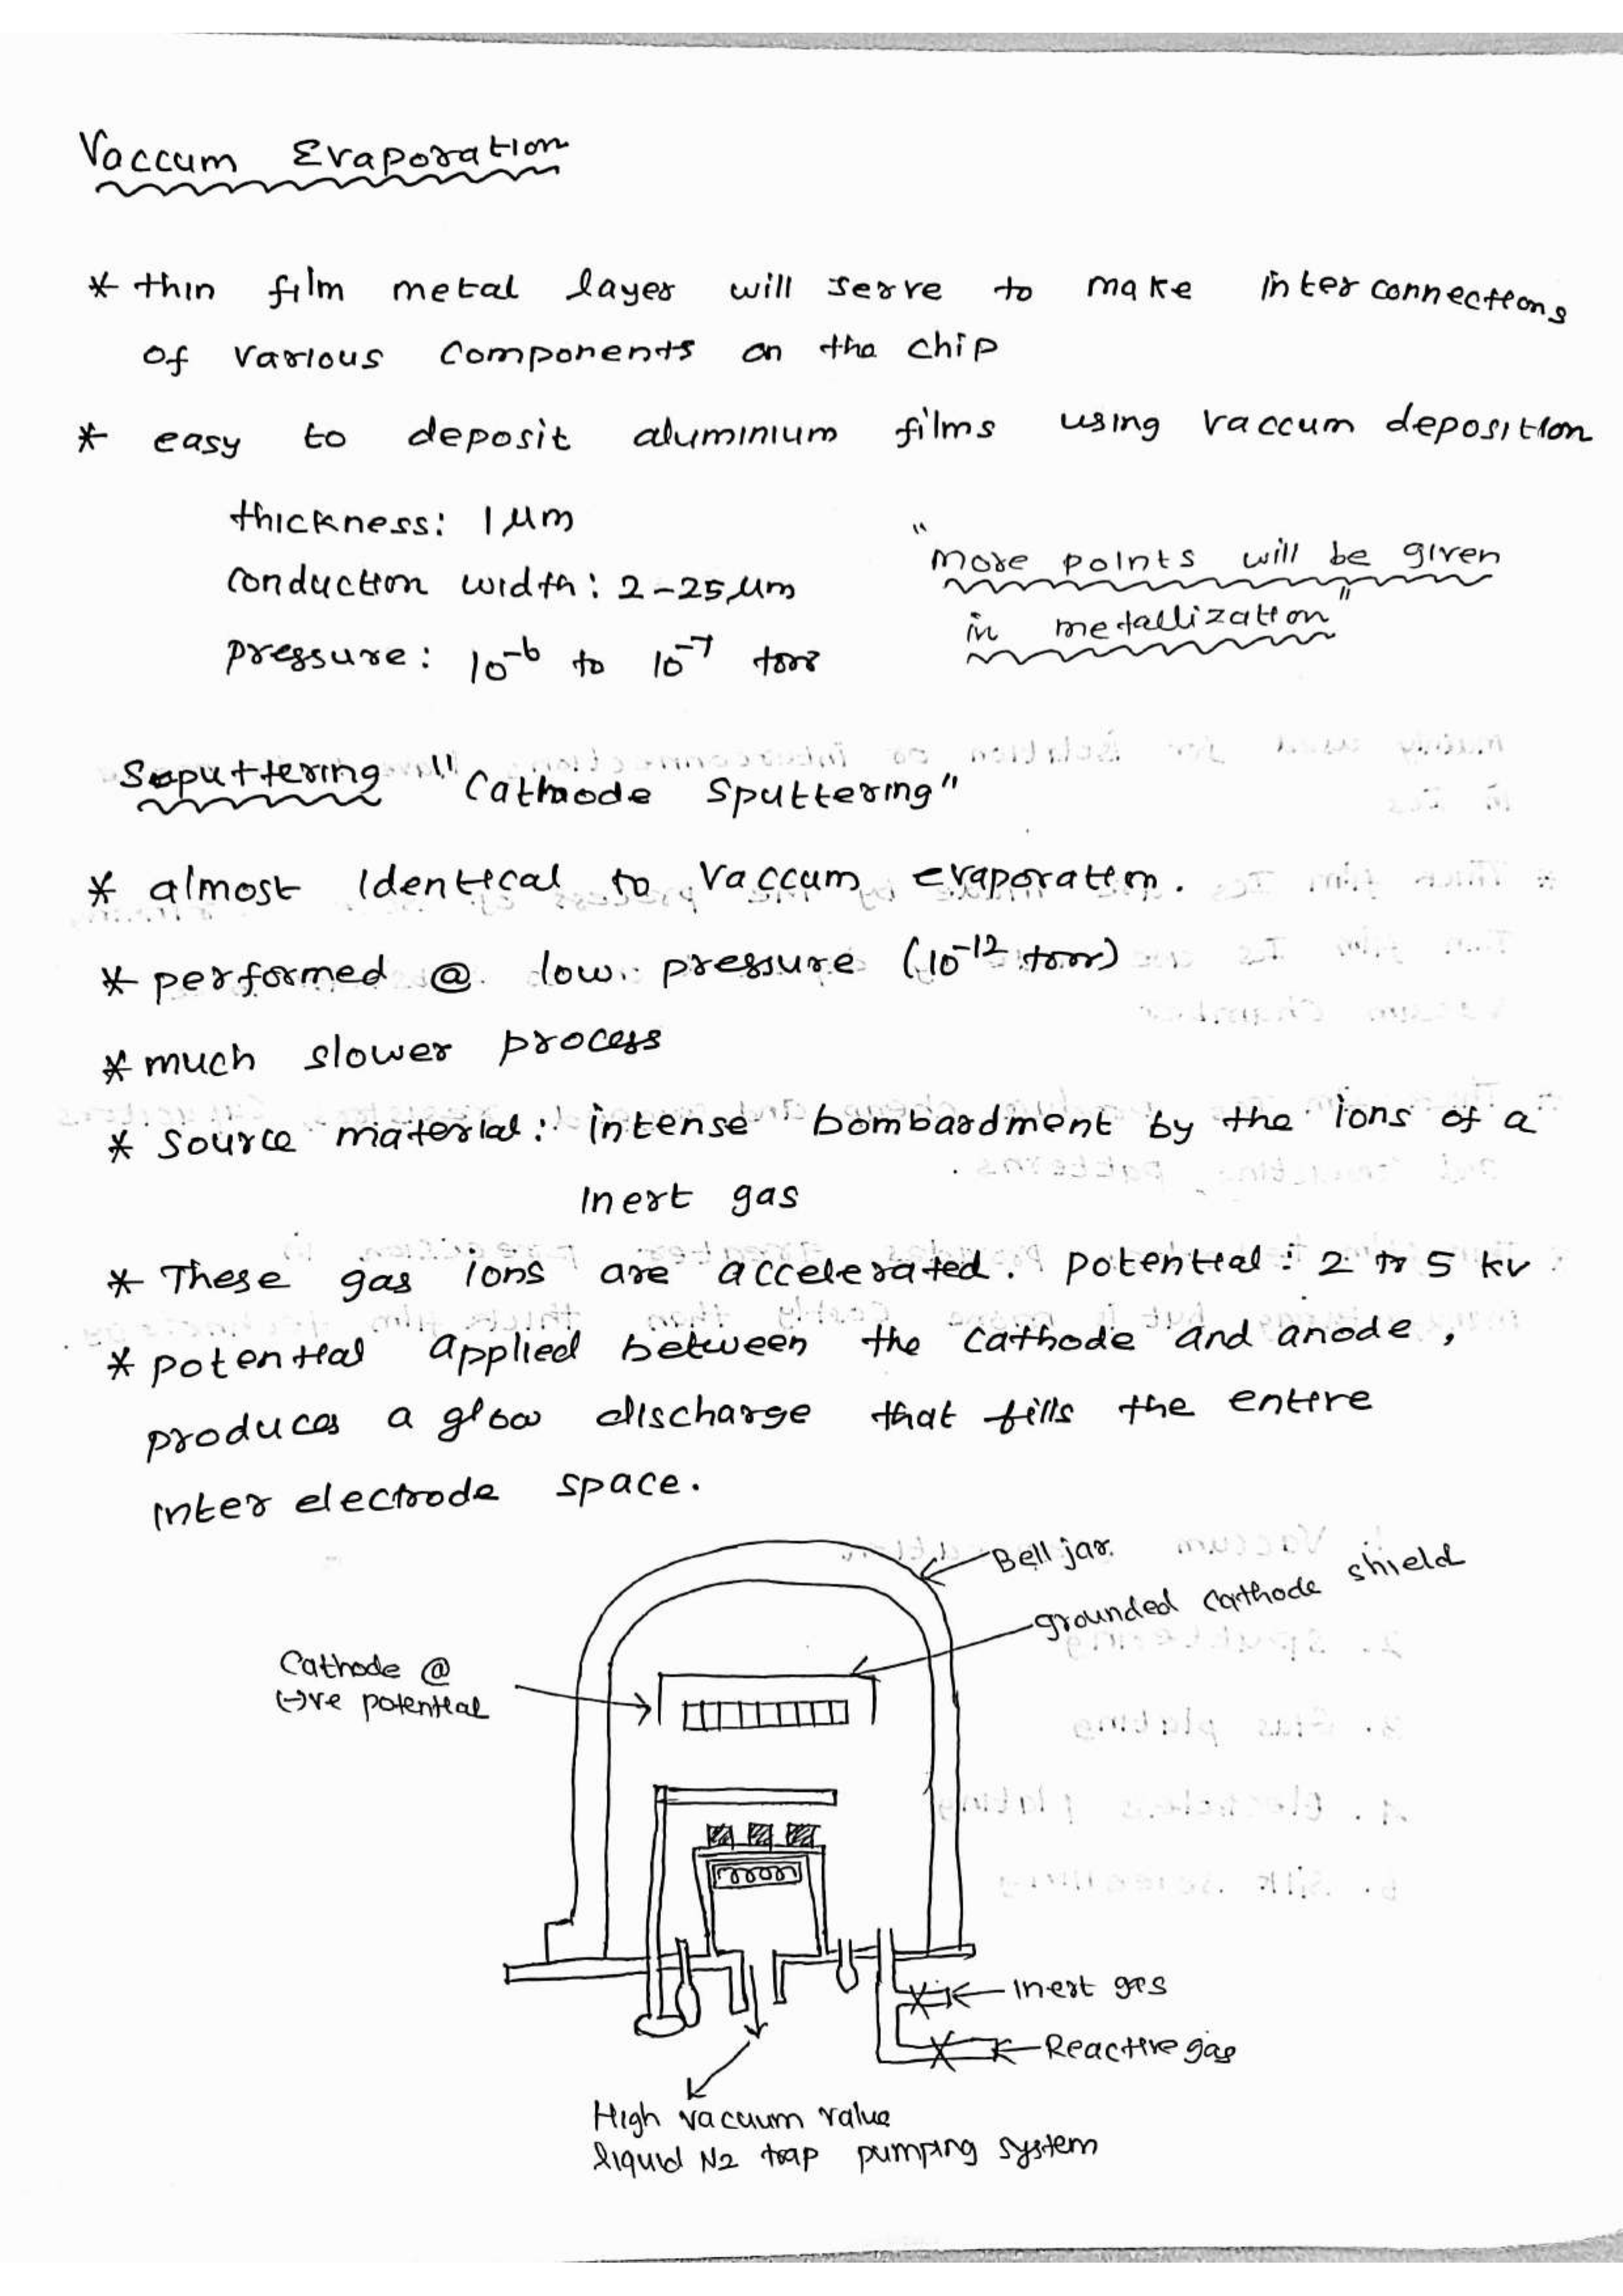 Vaccum Evaporation
* thin film metal layer will serve to make interconnections
of various components on the chip
* easy to deposit aluminium films using vaccum deposition
thickness: 1 μm
conduction width: 2-25 μm
pressure: 10⁻⁶ to 10⁻⁷ torr
"more points will be given
in metallization"
Sputtering "Cathode Sputtering"
* almost identical to vaccum evaporation.
* performed @ low pressure (10⁻¹² torr)
* much slower process
* source material: intense bombardment by the ions of a
inert gas
* These gas ions are accelerated. potential: 2 to 5 kv
* potential applied between the cathode and anode,
produces a glow discharge that fills the entire
inter electrode space.
Bell jar
grounded cathode shield
Cathode @
(-)ve potential
Inert gas
Reactive gas
High vacuum value
liquid N2 trap pumping system